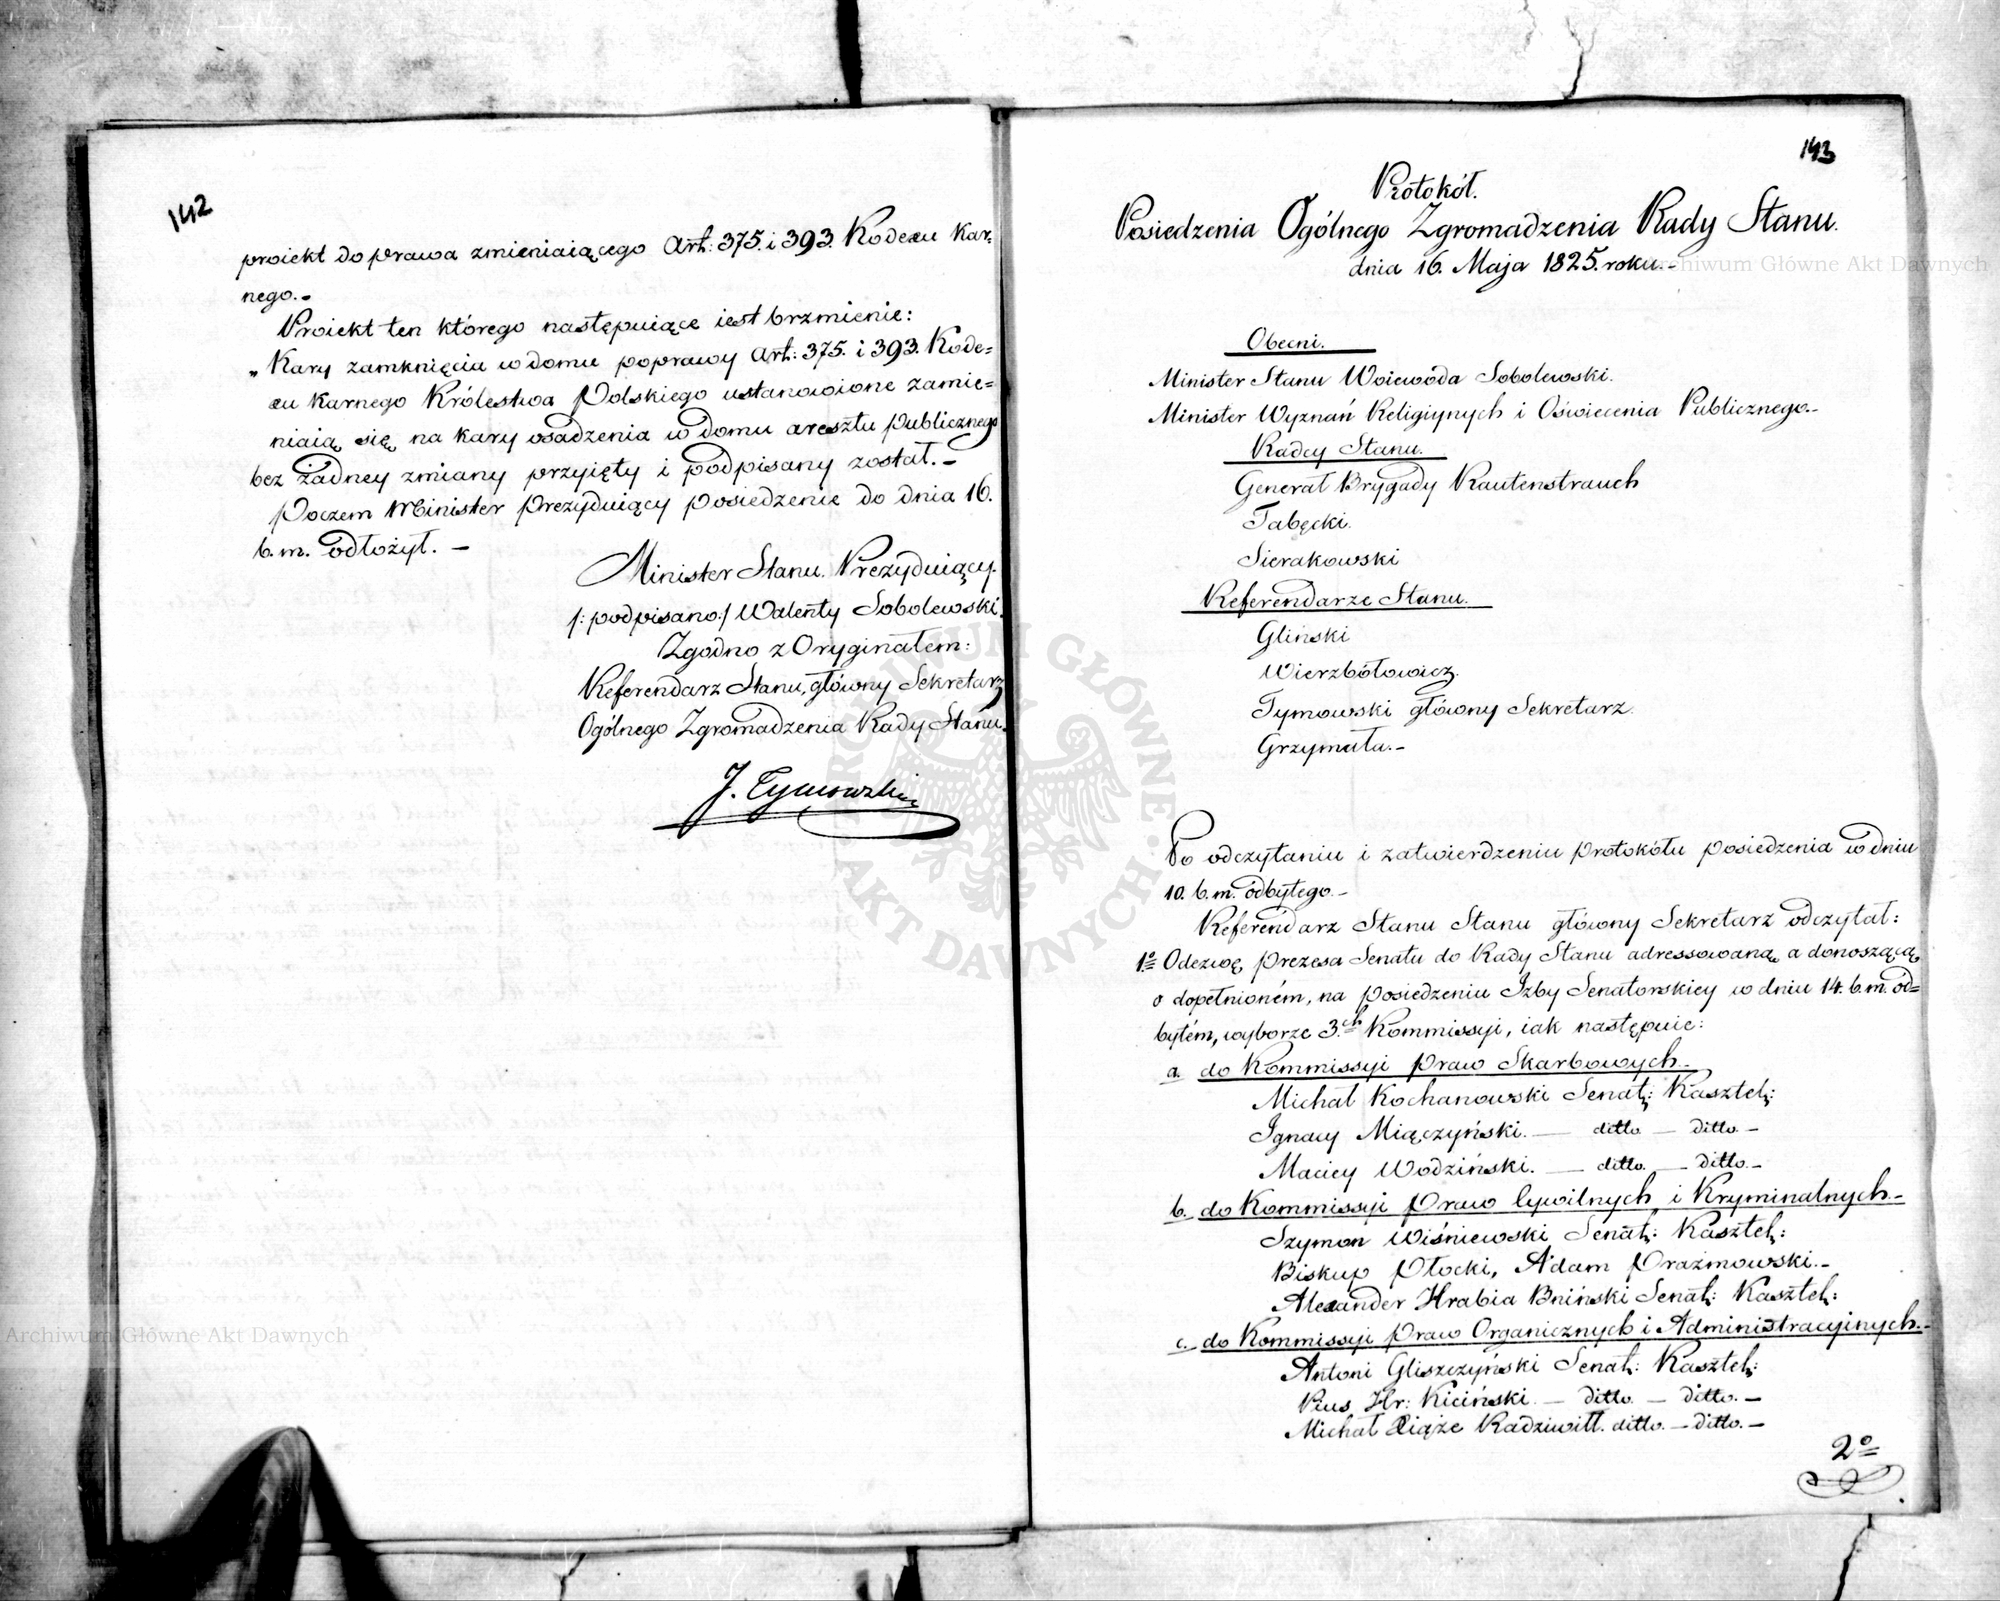 142
proiekt do prawa zmieniaiącego Art: 375. i 393. Kodexu Kar=
nego.-
Proiekt ten którego następuiące iest brzmienie:
„Kary zamknięcia w domu poprawy Art: 375. i 393. Kode=
xu Karnego Królestwa Polskiego ustanowione zamie=
niaią się na kary osadzenia w domu aresztu publicznego
bez żadney zmiany przyięty i podpisany został.-
Poczem Minister Prezyduiący posiedzenie do dnia 16.
b. m. odłożył. -
Minister Stanu Prezyduiący.
/: podpisano :/ Walenty Sobolewski.
Zgodno z Oryginałem:
Referendarz Stanu, główny Sekretarz
Ogólnego Zgromadzenia Rady Stanu.
J. Tymowski
143
Protokół.
Posiedzenia Ogólnego Zgromadzenia Rady Stanu.
dnia 16. Maja 1825. roku.-
Obecni.
Minister Stanu Woiewoda Sobolewski.
Minister Wyznań Religiynych i Oświecenia Publicznego.-
Radcy Stanu.
Generał Brygady Rautenstrauch
Tabęcki.
Sierakowski
Referendarze Stanu.
Gliński
Wierzbołowicz.
Tymowski główny Sekretarz.
Grzymała.-
Po odczytaniu i zatwierdzeniu protokółu posiedzenia w dniu
10. b. m. odbytego.-
Referendarz Stanu Stanu główny Sekretarz odczytał:
1º Odezwę Prezesa Senatu do Rady Stanu adressowaną a donoszącą
o dopełnioném, na posiedzeniu Izby Senatorskiey w dniu 14. b. m. od=
bytém, wyborze 3.ch Kommissyi, iak następuie:
a. do Kommissyi Praw Skarbowych.-
Michał Kochanowski Senat: Kasztel:
Ignacy Miączyński. — ditto — ditto.-
Maciey Wodziński. — ditto. — ditto.-
b. do Kommissyi Praw Cywilnych i Kryminalnych.-
Szymon Wiśniewski Senat: Kasztel:
Biskup Płocki, Adam Prażmowski.-
Alexander Hrabia Bniński Senat: Kasztel:
c. do Kommissyi Praw Organicznych i Administracyinych.-
Antoni Gliszczyński Senat: Kasztel:
Pius Hr: Kiciński. — ditto. — ditto. —
Michał Xiąże Radziwiłł. ditto. — ditto. —
2º
Archiwum Główne Akt Dawnych
Archiwum Główne Akt Dawnych
ARCHIWUM GŁÓWNE AKT DAWNYCH